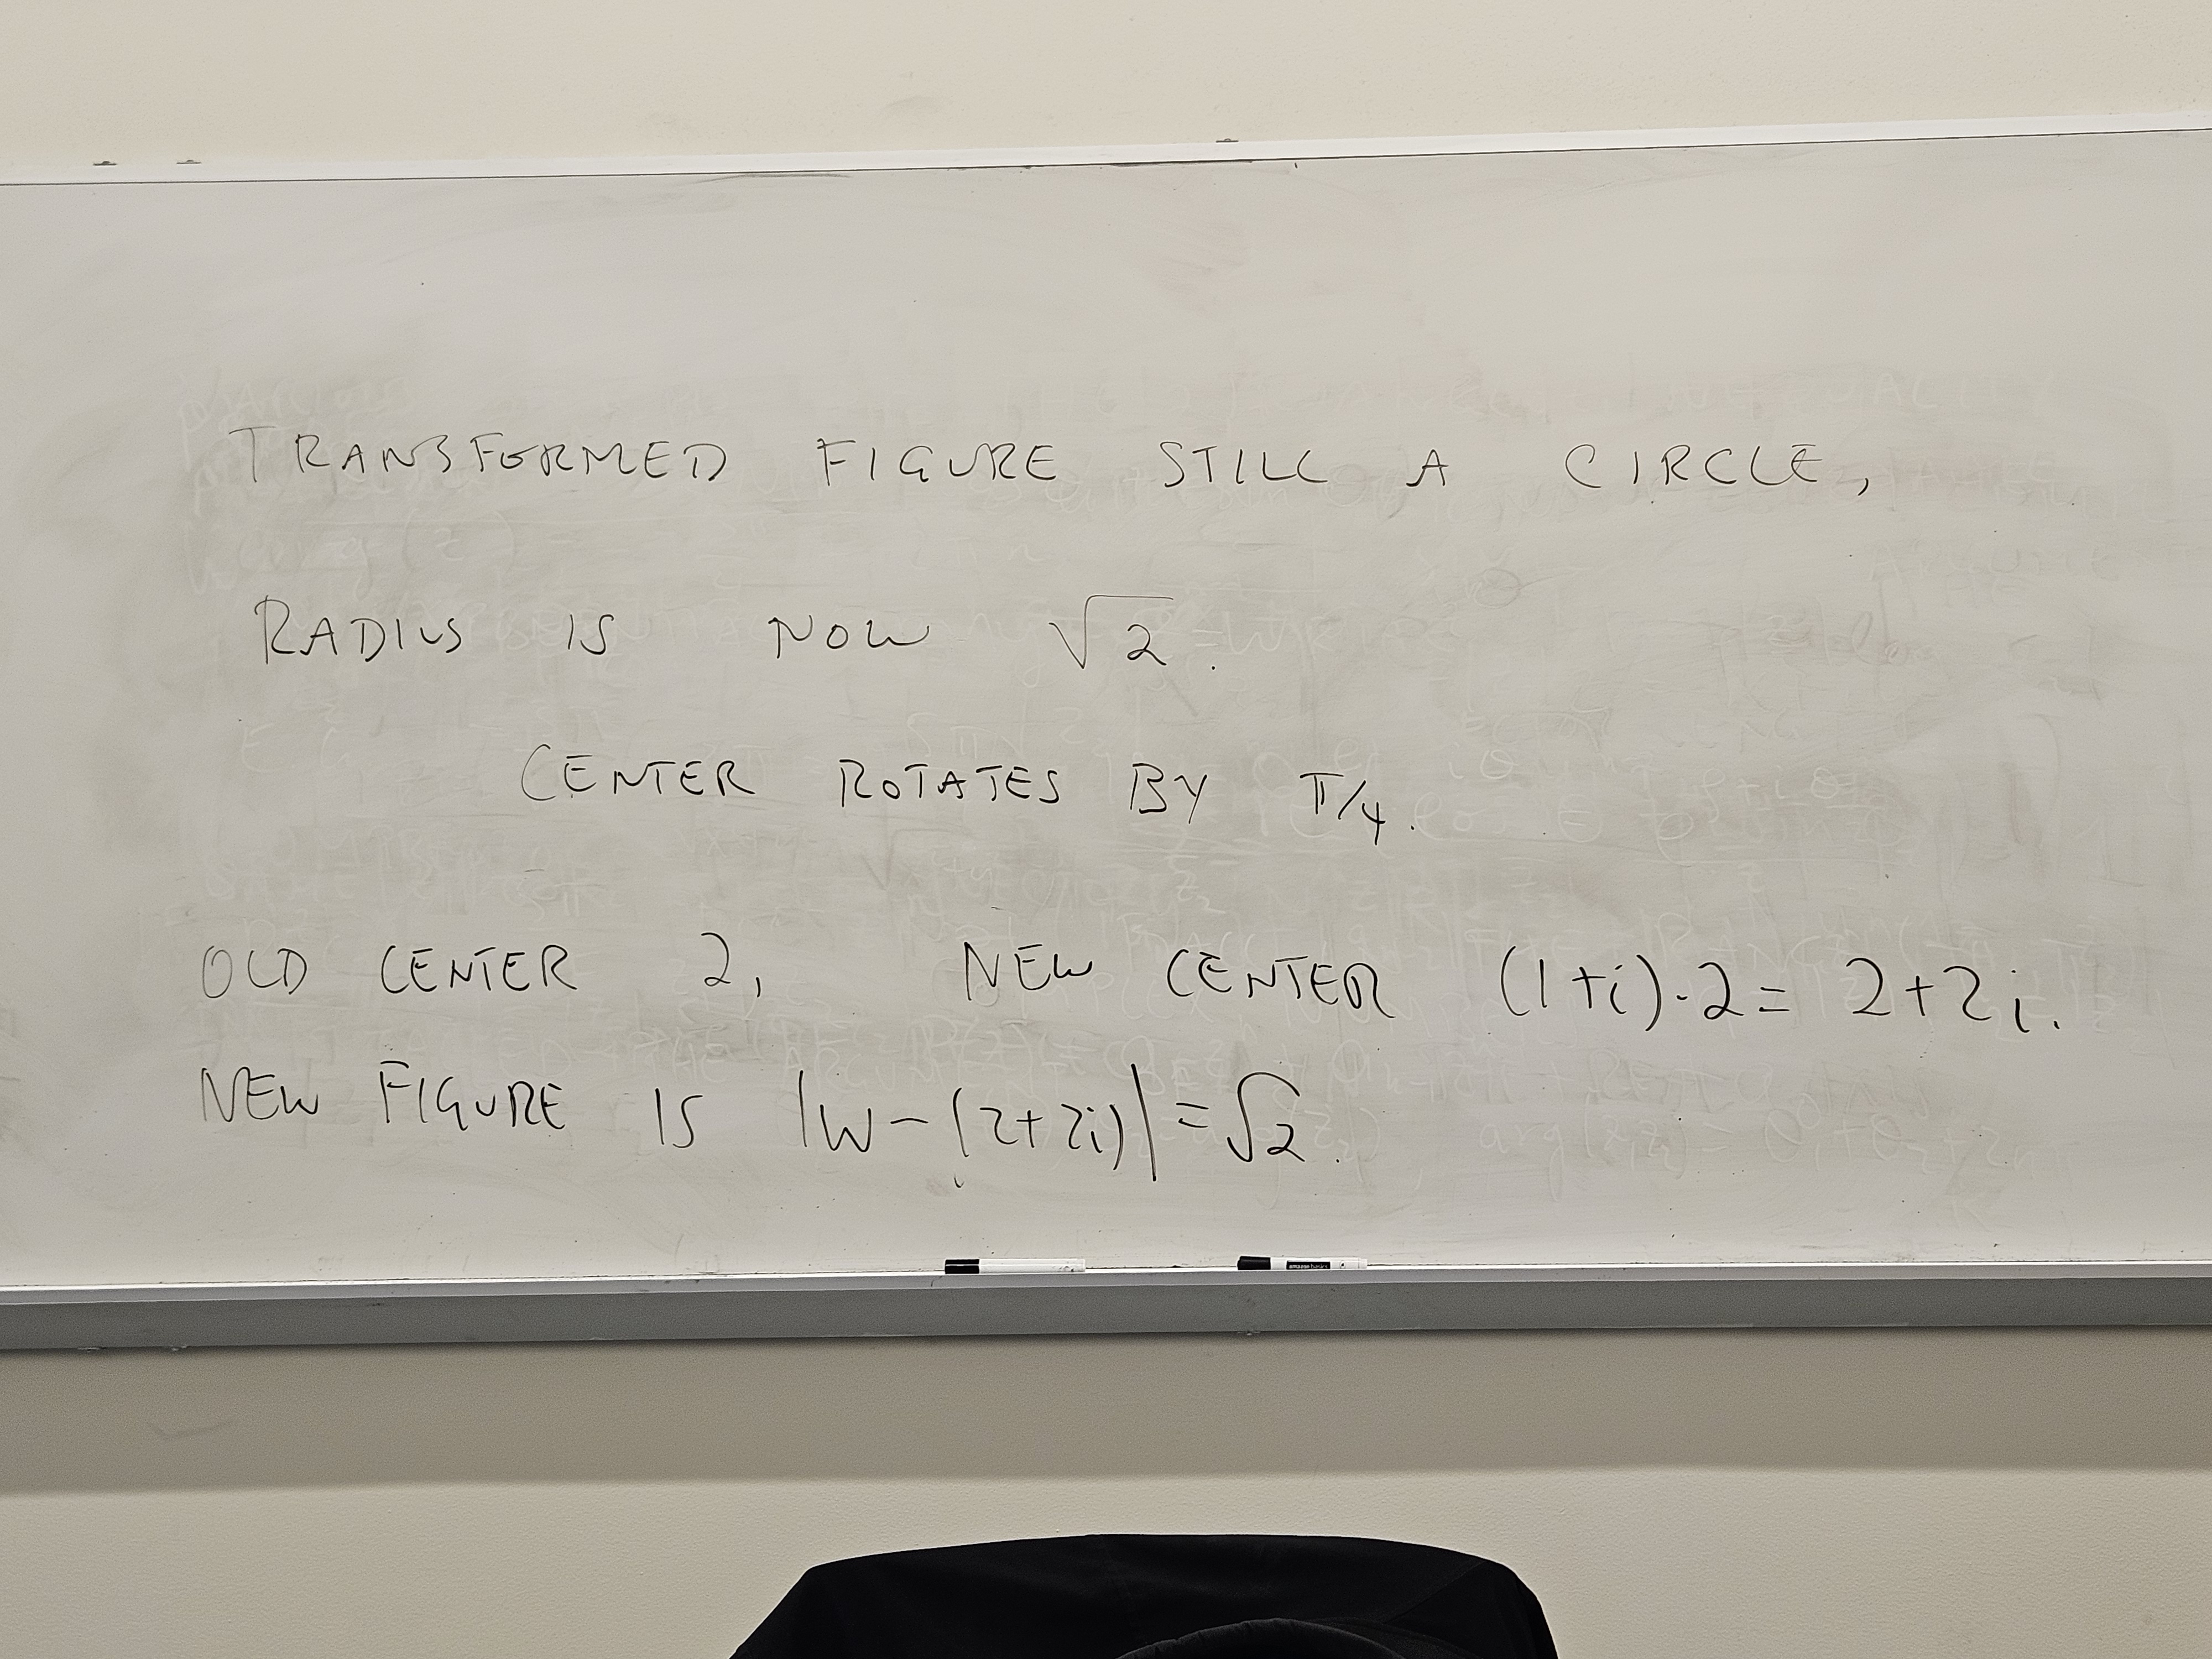 TRANSFORMED FIGURE STILL A CIRCLE,
RADIUS IS NOW √2.
CENTER ROTATES BY π/4.
OLD CENTER 2, NEW CENTER (1+i)·2 = 2+2i.
NEW FIGURE IS |W-(2+2i)| = √2.
amazon basics